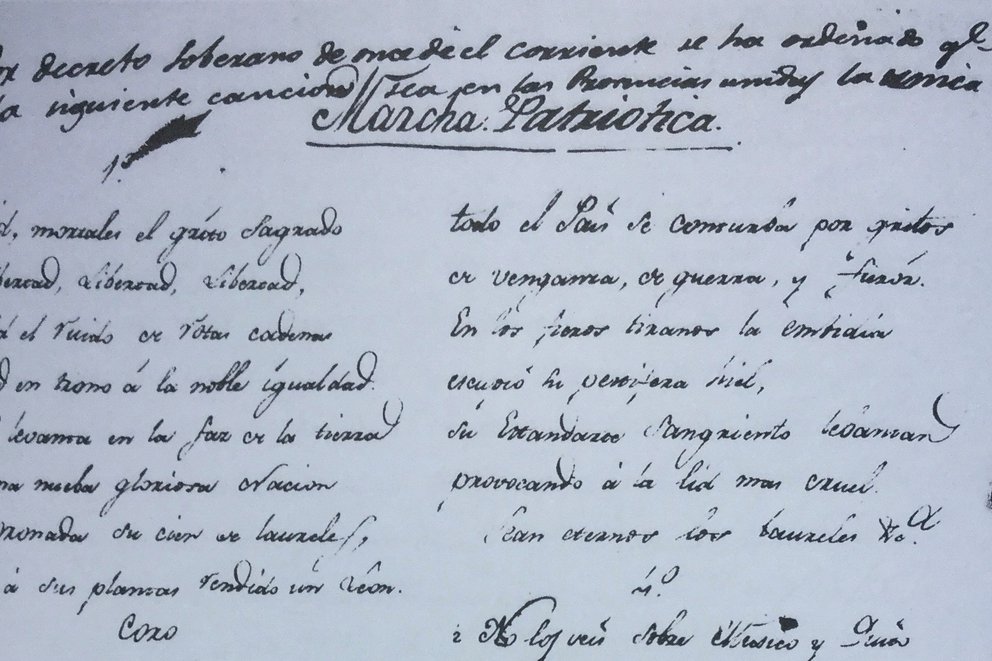 decreto soberano de onc de el corriente se ha ordenado ql
la siguiente cancion sea en las Provincias unidas la unica
Marcha Patriotica.
1º
mortales el grito Sagrado
Libertad, Libertad,
el ruido de rotas cadenas
en trono á la noble igualdad.
levanta en la faz de la tierra
nueba gloriosa Nacion
su cien de laureles,
á sus plantas rendido un Leon.
Coro
todo el Pais se conturba por gritos
de venganza, de guerra, y furor.
En los fieros tiranos la embidia
escupió su pestifera hiel,
su Estandarte Sangriento levantan
provocando á la lid mas cruel.
Sean eternos los Laureles &ª
4º
No los veis sobre Mexico y Quito